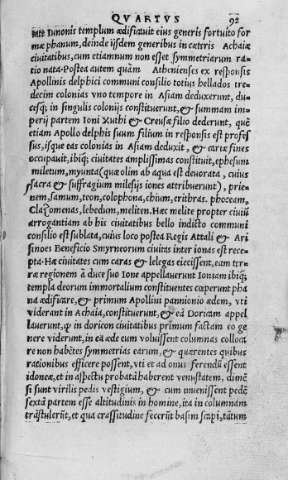 QVARTVS 92
iuit Iunonis templum ædificauit eius generis fortuito for
mæ phanum, deinde ijsdem generibus in cæteris Achaiæ
ciuitatibus, cum etiamnum non esset symmetriarum ra
tio nata. Postea autem quàm Athenienses ex responsis
Apollinis delphici communi consilio totius hellados tre
decim colonias vno tempore in Asiam deduxerunt, du-
cesq; in singulis colonijs constituerunt, & summam im-
perij partem Ioni Xuthi & Creusæ filio dederunt, quẽ
etiam Apollo delphis suum filium in responsis est profes
sus, isque eas colonias in Asiam deduxit, & cariæ fines
occupauit, ibiq; ciuitates amplissimas constituit, ephesum
miletum, myunta (quæ olim ab aqua est deuorata, cuius
sacra & suffragium milesijs iones attribuerunt), prie-
nem, samum, teon, colophona, chium, erithras. phoceam,
Clazomenas, lebedum, meliten. Hæc melite propter ciuiũ
arrogantiam ab his ciuitatibus bello indicto communi
consilio est sublata, cuius loco postea Regis Attali & Ari
sinoes Beneficio Smyrneorum ciuitas inter ionas est rece
pta. Hæ ciuitates cum caras & lelegas eiecissent, eam ter-
ræ regionem à duce suo Ione appellauerunt Ioniam ibiq;
templa deorum immortalium constituentes cœperunt phа
na ædificare, & primum Apollini pannionio ædem, vti
viderant in Achaia, constituerunt, & eã Doricam appel
lauerunt, quòd in doricon ciuitatibus primum factam eo ge
nere viderunt, in ea æde cum voluissent columnas colloca
re non habẽtes symmetrias earum, & quærentes quibus
rationibus efficere possent, vti et ad onus ferendũ essent
idoneæ, et in aspectu probatã haberent venustatem, dimẽ
si sunt virilis pedis vestigium, & cum inuenissent pedẽ
sextã partem esse altitudinis in homine, ita in columnam
trãstulerũt, et qua crassitudine fecerũt basim scapi, tãtum